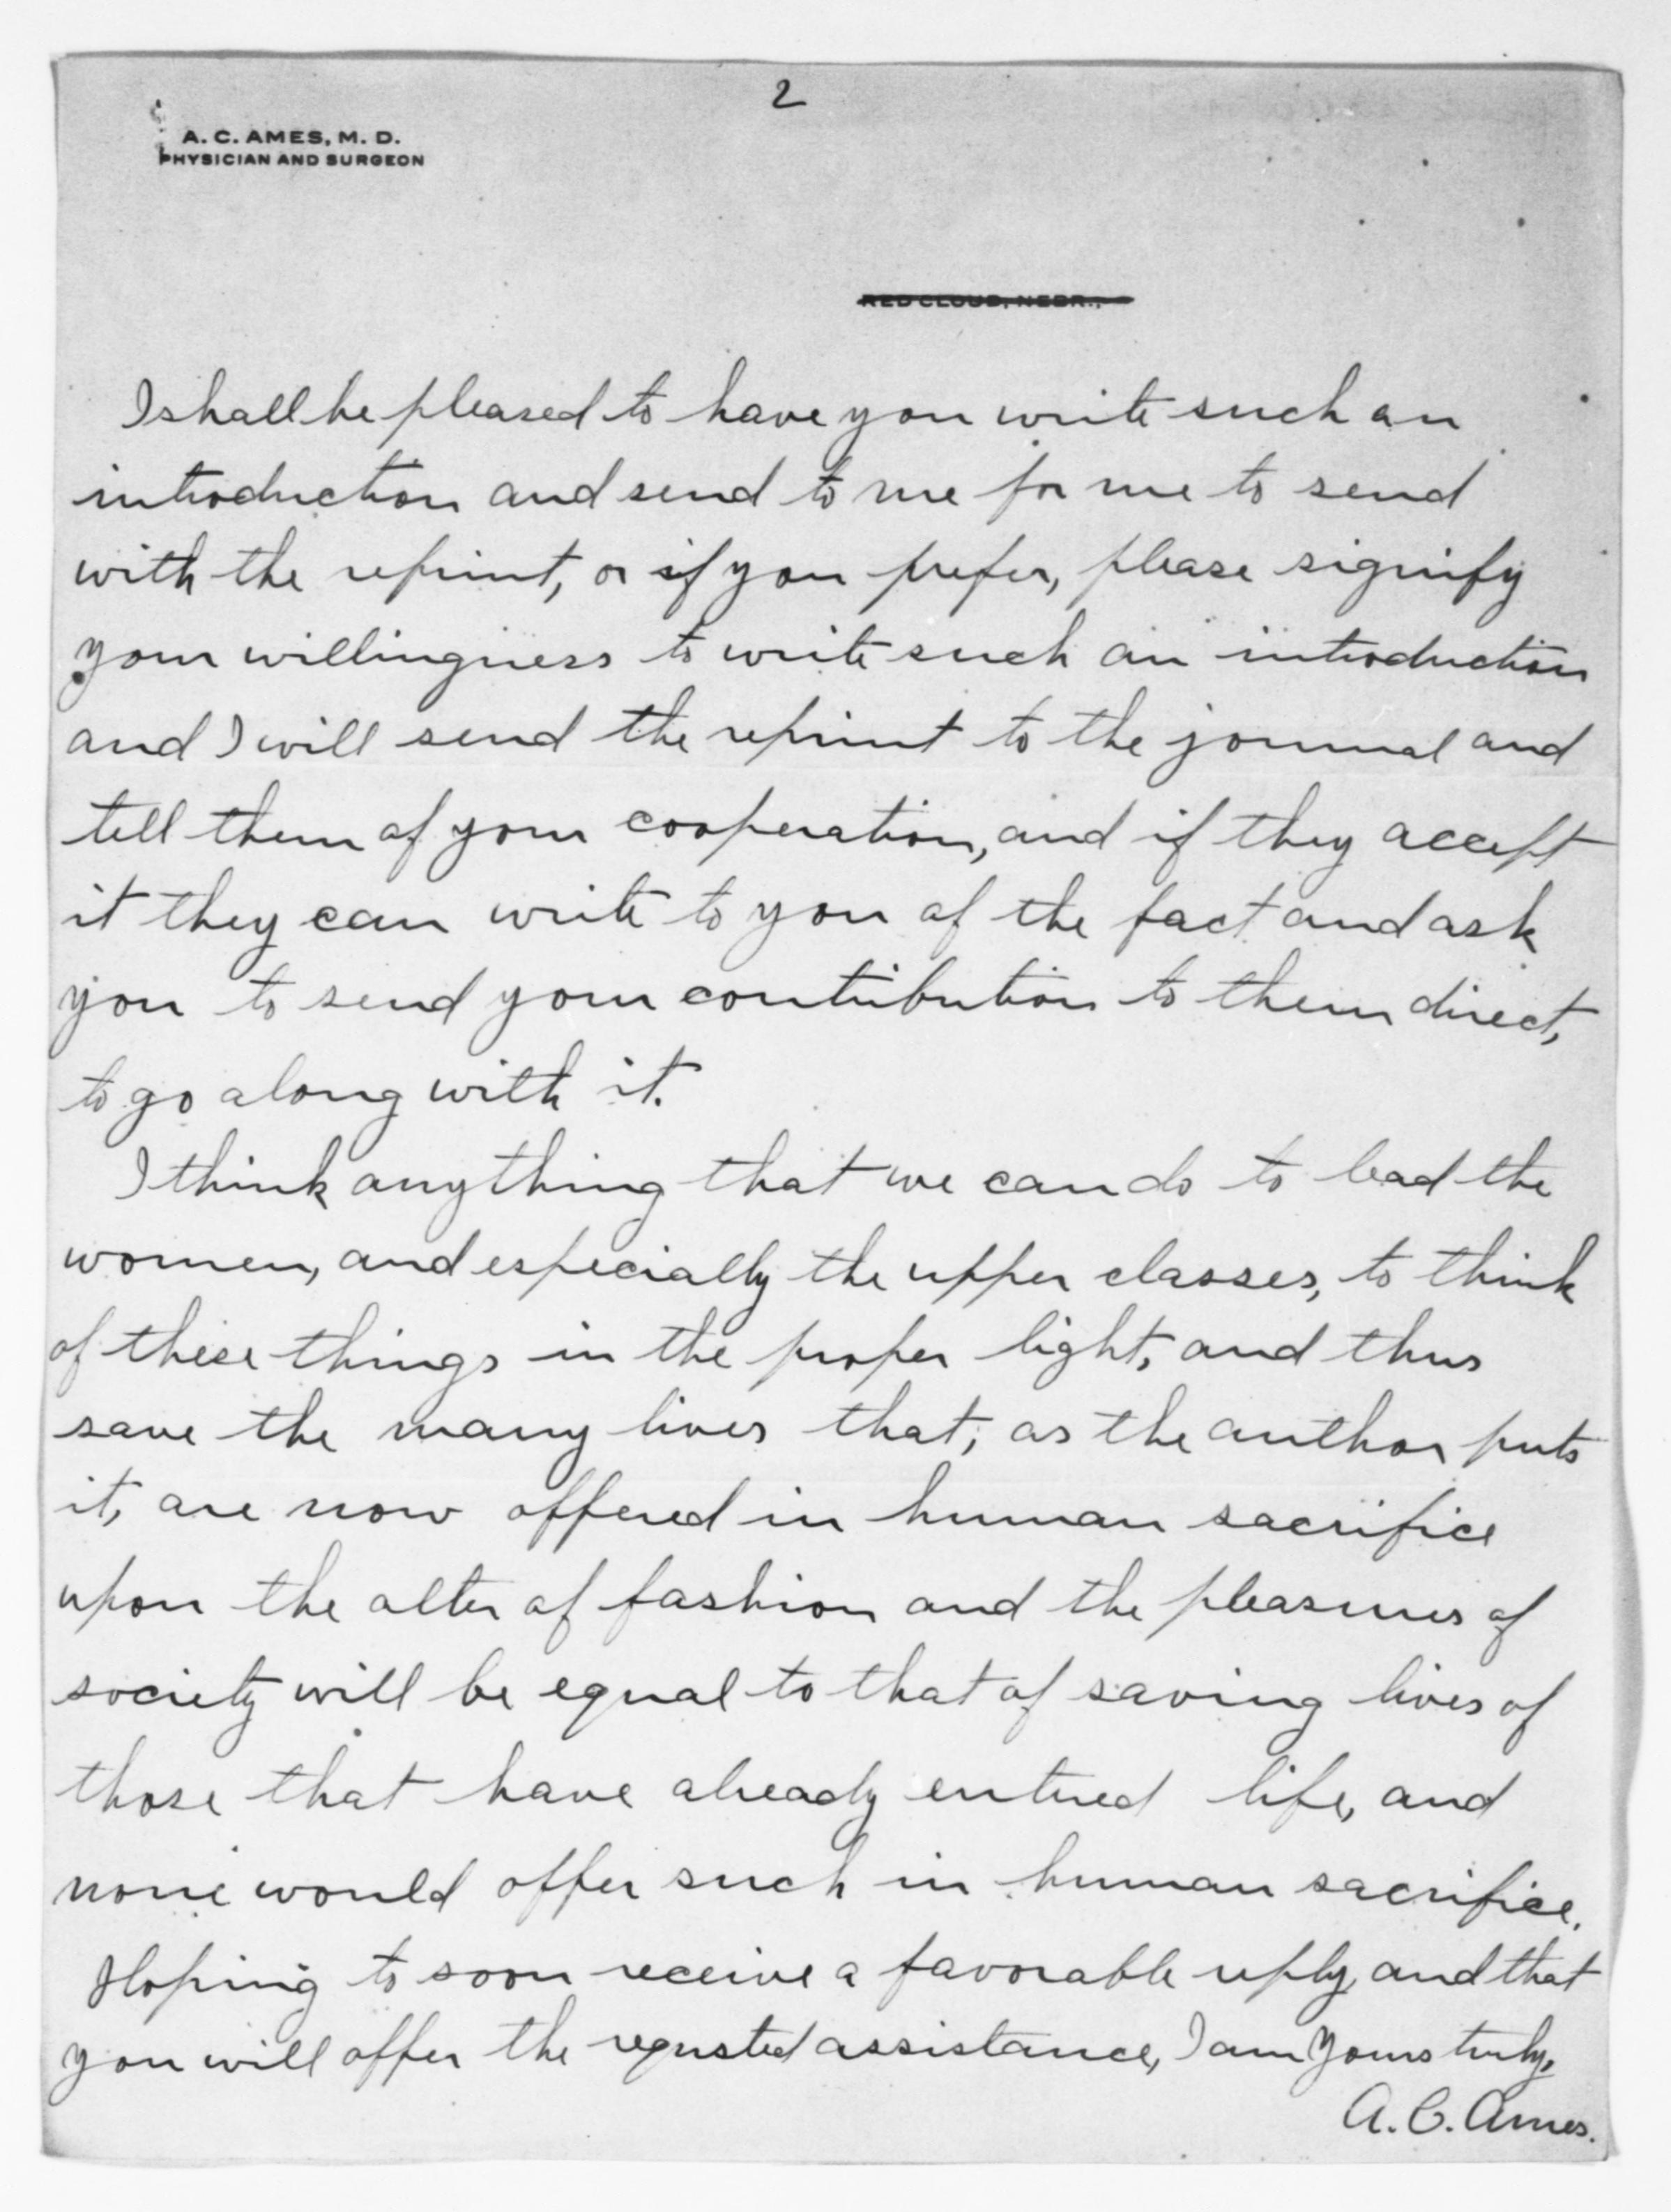 2
A. C. AMES, M. D.
PHYSICIAN AND SURGEON
RED CLOUD, NEBR.,
I shall be pleased to have you write such an
introduction and send to me for me to send
with the reprint, or if you prefer, please signify
your willingness to write such an introduction
and I will send the reprint to the journal and
tell them of your cooperation, and if they accept
it they can write to you of the fact and ask
you to send your contribution to them direct,
to go along with it.
I think anything that we can do to lead the
women, and especially the upper classes, to think
of these things in the proper light, and thus
save the many lives that, as the author puts
it, are now offered in human sacrifice
upon the alter of fashion and the pleasures of
society will be equal to that of saving lives of
those that have already entered life, and
none would offer such in human sacrifice.
Hoping to soon receive a favorable reply, and that
you will offer the requsted assistance, I am Yours truly,
A. C. Ames.